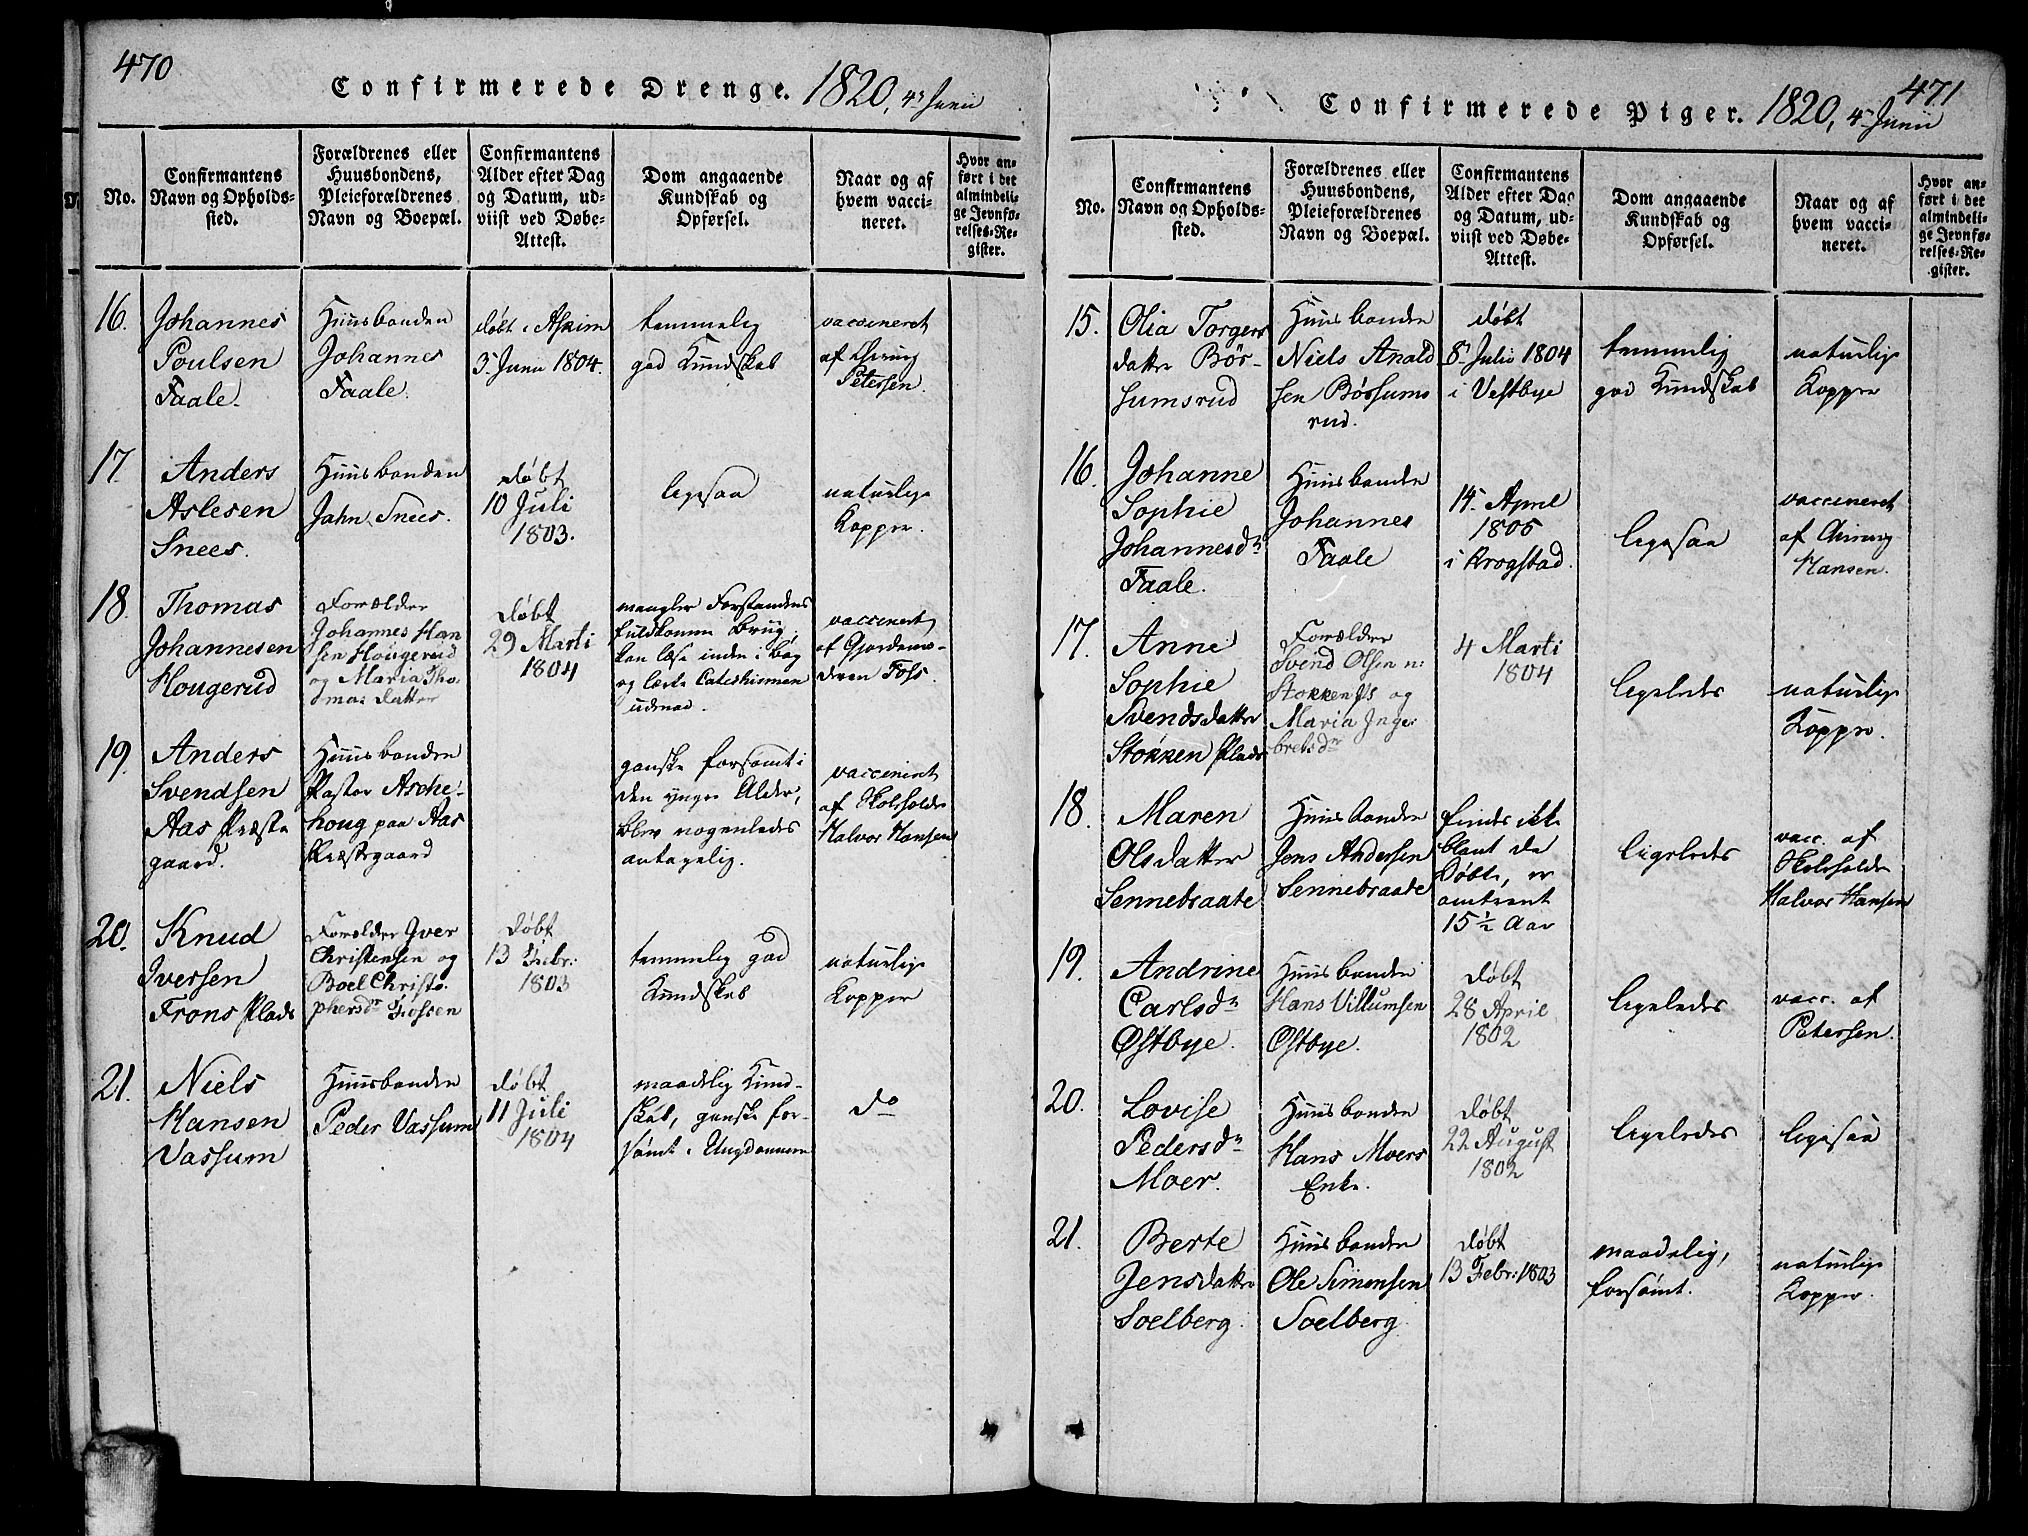 470
Confirmerede Drenge. 1820, 4de Junii
No.
Confirmantens
Navn og Opholds-
sted.
Forældrenes eller
Huusbondens,
Pleieforældrenes
Navn og Boepæl.
Confirmantens
Alder efter Dag
og Datum, ud-
viist ved Døbe-
Attest.
Dom angaaende
Kundskab og
Opførsel.
Naar og af
hvem vacci-
neret.
Hvor an-
ført i det
almindeli-
ge Jevnfø-
relses-Re-
gister.
16.
Johannes
Poulsen
Faale.
Huusbonden
Johannes
Faale.
døbt i Askim
3 Junii 1804.
temmelig
god Kundskab
vaccineret
af Chirurg
Petersen.
17.
Anders
Aslesen
Snees.
Huusbonden
Jahn Snees.
døbt
10 Juli
1803.
ligesaa
naturlige
Kopper
18.
Thomas
Johannesen
Hougerud
Forælder
Johannes Han
sen Hougerud
og Maria Tho
mas datter
døbt
29 Marti
1804
mangler Forstandens
fuldkomne Brug,
kan læse inden i Bog
og lærte Cateshismen
udenad.
vaccineret
af Gjordemo-
deren Foss.
19.
Anders
Svendsen
Aas Præste
gaard.
Huusbonden
Pastor Asche-
houg paa Aas
Præstegaard
ganske forsømt i
den yngre Alder,
blev nogenledes
antagelig.
vaccineret
af Skoleholder
Halvor Hansen
20.
Knud
Iversen
Frons Plads
Forælder Iver
Christensen og
Boel Christo-
phersdr Fossen
døbt
13 Febr:
1803
temmelig god
Kundskab
naturlige
Kopper
21.
Niels
Hansen
Vassum
Huusbonden
Peder Vassum
døbt
11 Juli
1804
maadelig Kund-
skab, ganske for-
sømt i Ungdommen
do
471
Confirmerede Piger. 1820, 4de Junii
No.
Confirmantens
Navn og Opholds-
sted.
Forældrenes eller
Huusbondens,
Pleieforældrenes
Navn og Boepæl.
Confirmantens
Alder efter Dag
og Datum, ud-
viist ved Døbe-
Attest.
Dom angaaende
Kundskab og
Opførsel.
Naar og af
hvem vacci-
neret.
Hvor an-
ført i det
almindeli-
ge Jevnfø-
relses-Re-
gister.
15.
Olia Torgers
datter Bør-
sumsrud
Huusbonden
Niels Anold
sen Børsums
rud.
døbt
8 Julii 1804
i Vestbye
temmelig
god Kundskab
naturlige
Kopper
16.
Johanne
Sophie
Johannesdr
Faale.
Huusbonden
Johannes
Faale
14 April
1805
i Krogstad.
ligesaa
vaccineret
af Chirurg
Hansen.
17.
Anne
Sophie
Svendsdatter
Stokken Plads
Forælder
Svend Olsen n:
Stokken Pl: og
Maria Inge-
bretsdr
4 Marti
1804
ligeledes
naturlige
Kopper.
18.
Maren
Olsdatter
Sennebraate
Huusbonden
Jens Andersen
Sennebraate
findes ikke
blant de
Døbte, er
omtrent
15 1/2 Aar
ligeledes
vacc. af
Skoleholder
Halvor Hansen
19.
Andrine
Carlsdr
Østbye.
Huusbonden
Hans Villumsen
Østbye.
døbt
28 April
1802
ligeledes
vacc. af
Petersen.
20.
Lovise
Pedersdr
Moer.
Huusbonden
Hans Moers
Enke.
døbt
22 August
1802
ligeledes
ligesaa
21.
Berte
Jensdatter
Soelberg.
Huusbonden
Ole Simensen
Soelberg.
døbt
13 Febr: 1803
maadelig,
forsømt.
naturlige
Kopper.